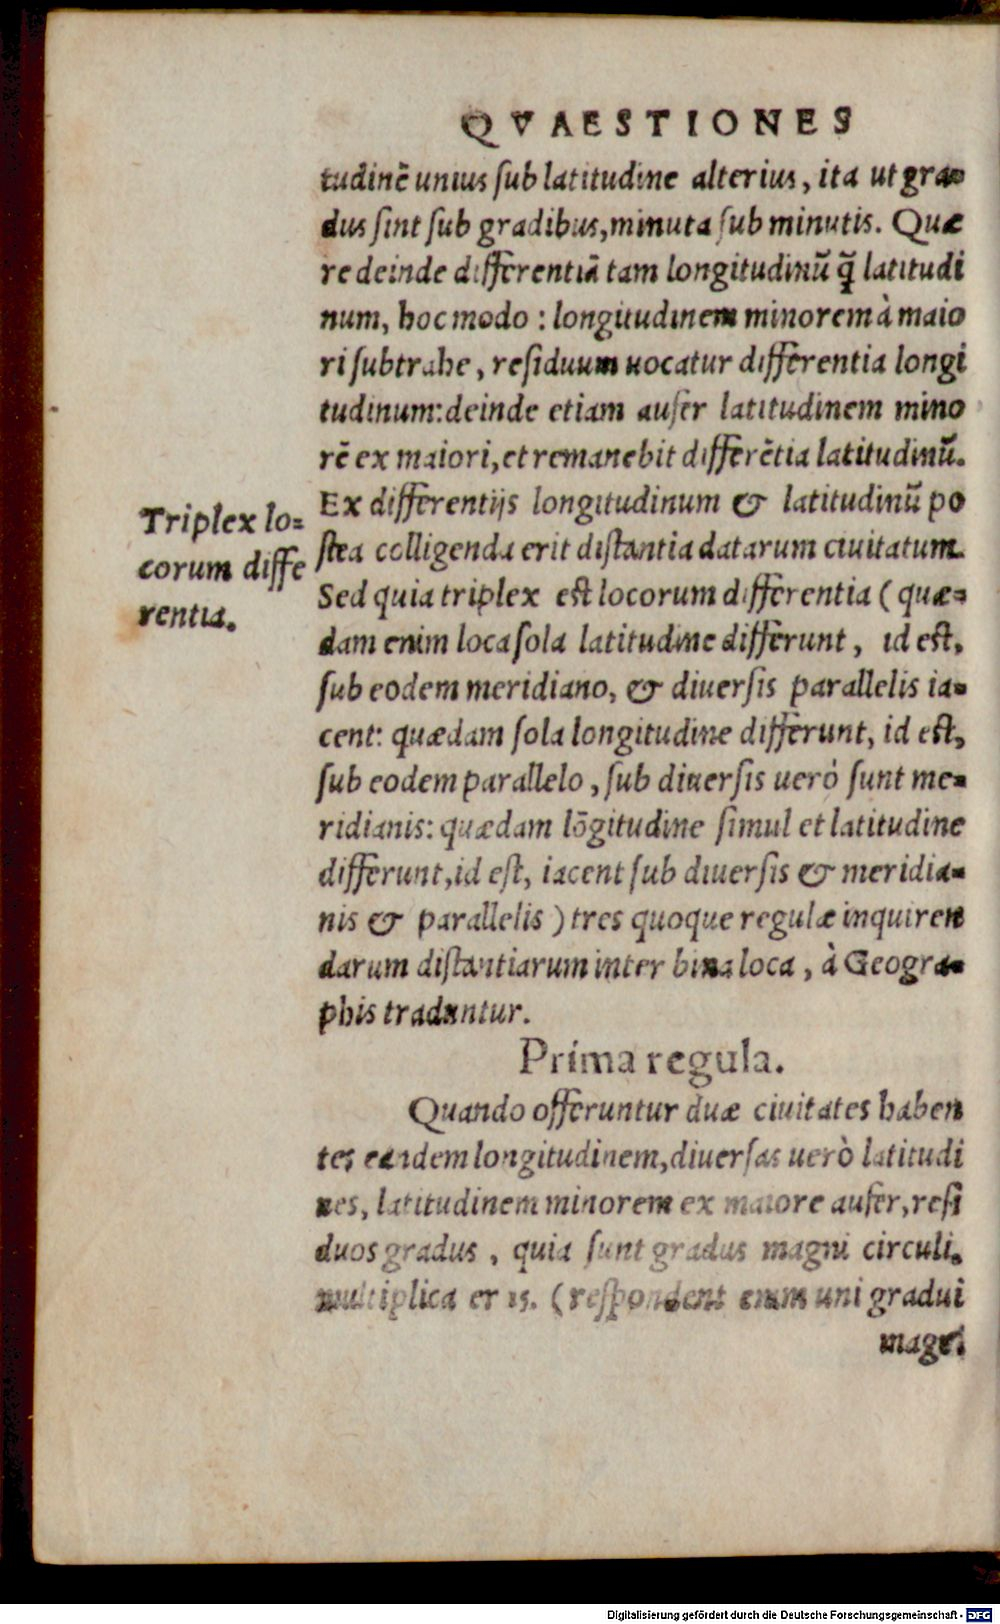 QVAESTIONES
tudinẽ unius ſub latitudine alterius, ita ut gra-
dus ſint ſub gradibus, minuta ſub minutis. Quæ
re deinde differentiã tam longitudinũ q̃ latitudi
num, hoc modo : longitudinem minorem à maio
ri ſubtrahe, reſiduum uocatur differentia longi
tudinum: deinde etiam aufer latitudinem mino
rẽ ex maiori, et remanebit differẽtia latitudinũ.
Ex differentijs longitudinum & latitudinũ po
ſtea colligenda erit diſtantia datarum ciuitatum.
Triplex lo-
corum diffe
rentia.
Sed quia triplex eſt locorum differentia ( quæ-
dam enim loca ſola latitudine differunt, id eſt,
ſub eodem meridiano, & diuerſis parallelis ia-
cent: quædam ſola longitudine differunt, id eſt,
ſub eodem parallelo, ſub diuerſis uerò ſunt me-
ridianis: quædam lõgitudine ſimul et latitudine
differunt, id eſt, iacent ſub diuerſis & meridia-
nis & parallelis ) tres quoque regulæ inquiren
darum diſtantiarum inter bina loca, à Geogra-
phis traduntur.
Prima regula.
Quando offeruntur duæ ciuitates haben
tes eandem longitudinem, diuerſas uerò latitudi
nes, latitudinem minorem ex maiore aufer, reſi
duos gradus, quia ſunt gradus magni circuli,
multiplica er 15. ( reſpondent enim uni gradui
magni
Digitalisierung gefördert durch die Deutsche Forschungsgemeinschaft - DFG